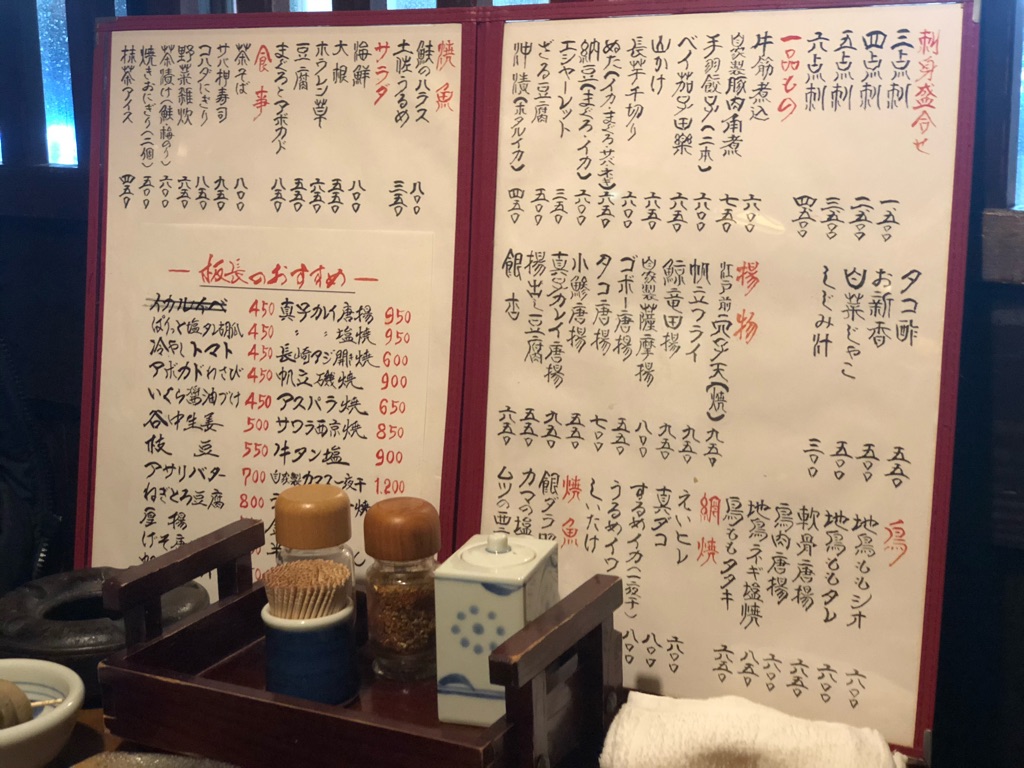 刺身盛合せ
三点刺 一五〇〇
四点刺 二五〇〇
五点刺 三五〇〇
六点刺 四五〇〇
一品もの
牛筋煮込 六〇〇
自家製豚肉角煮 七五〇
手羽餃子(二本) 六〇〇
ベイ茄子田樂 六五〇
山かけ 六五〇
長芋千切り 六〇〇
ぬた(イカ・まぐろ・サバ・赤貝) 六五〇
納豆(まぐろ・イカ) 六〇〇
エシャーレット 三五〇
ざる豆腐 五五〇
沖漬(ホタルイカ) 四五〇
タコ酢 五五〇
お新香 五〇〇
白菜じゃこ 五〇〇
しじみ汁 三〇〇
揚物
江戸前穴子天(焼) 九五〇
帆立フライ 九五〇
鯨竜田揚 九五〇
自家製薩摩揚 八〇〇
ゴボー唐揚 五五〇
タコ唐揚 七〇〇
小鯵唐揚 五五〇
真子カレイ唐揚 九五〇
揚出し豆腐 五五〇
銀杏 六五〇
鳥
地鳥ももシオ 六〇〇
地鳥ももタレ 六〇〇
軟骨唐揚 六五〇
鳥肉唐揚 六〇〇
地鳥ネギ塩焼 八五〇
鳥ももタタキ 六五〇
網焼
えいヒレ 六〇〇
真ダコ 八〇〇
するめイカ(一夜干) 八〇〇
うるめイワ
しいたけ
焼魚
銀ダラ照
カマの塩
ムツの西
焼魚
鮭のハラス 八〇〇
土佐うるめ 三五〇
サラダ
海鮮 八〇〇
大根 五五〇
ホウレン草 六五〇
豆腐 五五〇
まぐろとアボカド 八五〇
食事
茶そば 八〇〇
サバ柑寿司 九五〇
コハダにぎり 八五〇
野菜雑炊 六五〇
茶漬け(鮭・梅・のり) 六〇〇
焼きおにぎり(二個) 五〇〇
抹茶アイス 四五〇
— 板長のおすすめ —
イカルイベ 450
ぱりっと塩ダレ胡瓜 450
冷やしトマト 450
アボカドわさび 450
いくら醤油づけ 450
谷中生姜 500
枝豆 550
アサリバター 700
ねぎとろ豆腐 800
厚揚
けそ
真子カレイ唐揚 950
〃 〃 塩焼 950
長崎アジ開焼 600
帆立磯焼 900
アスパラ焼 650
サワラ西京焼 850
牛タン塩 900
自家製カマス一夜干 1.200
焼